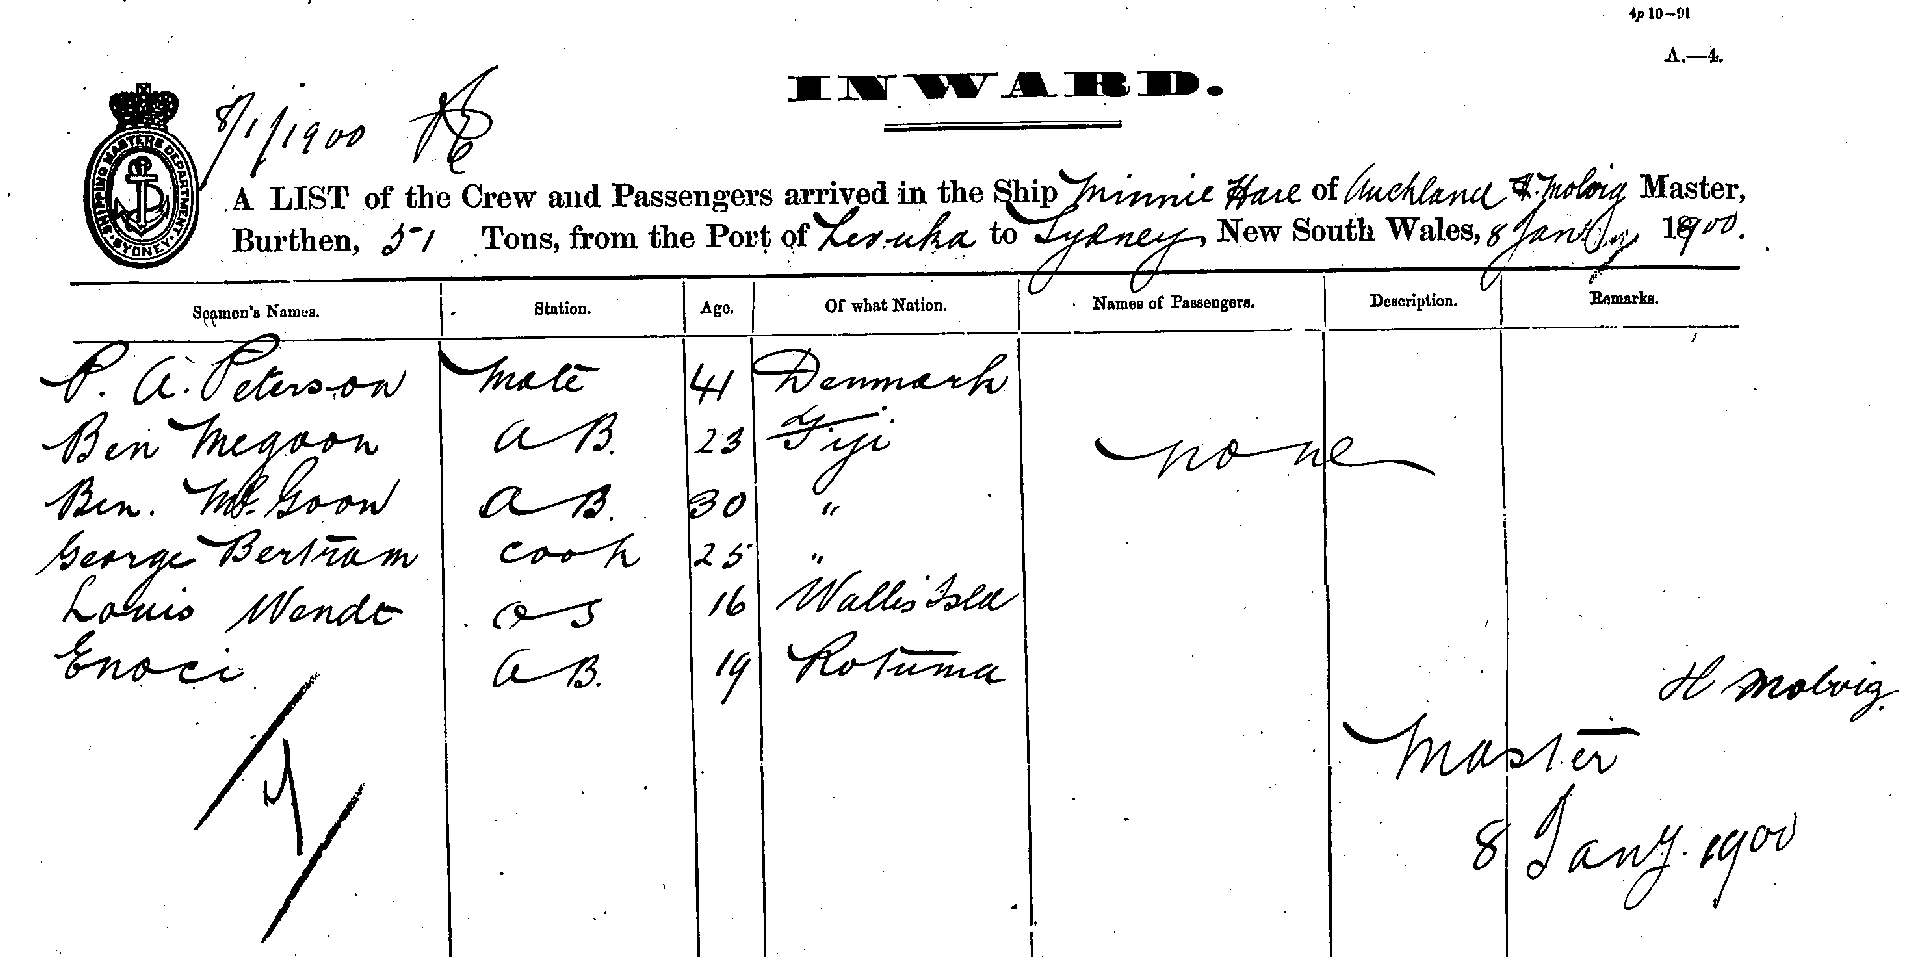 4p 10–91
A.—4.
INWARD.
8/1/1900
SHIPPING MASTERS DEPARTMENT SYDNEY
A LIST of the Crew and Passengers arrived in the Ship Minnie Hare of Auckland H. Molvig Master,
Burthen, 51 Tons, from the Port of Levuka to Sydney, New South Wales, 8 Jany 1900.
Seamen's Names. Station. Age. Of what Nation. Names of Passengers. Description. Remarks.
P. A. Peterson Mate 41 Denmark
Ben Megoon A B. 23 Fiji none
Ben. McGoon A B. 30 "
George Bertram Cook 25 "
Louis Wendt O S 16 Wallis Isld
Enoci A B. 19 Rotuma
H Molvig.
Master
8 Jany. 1900